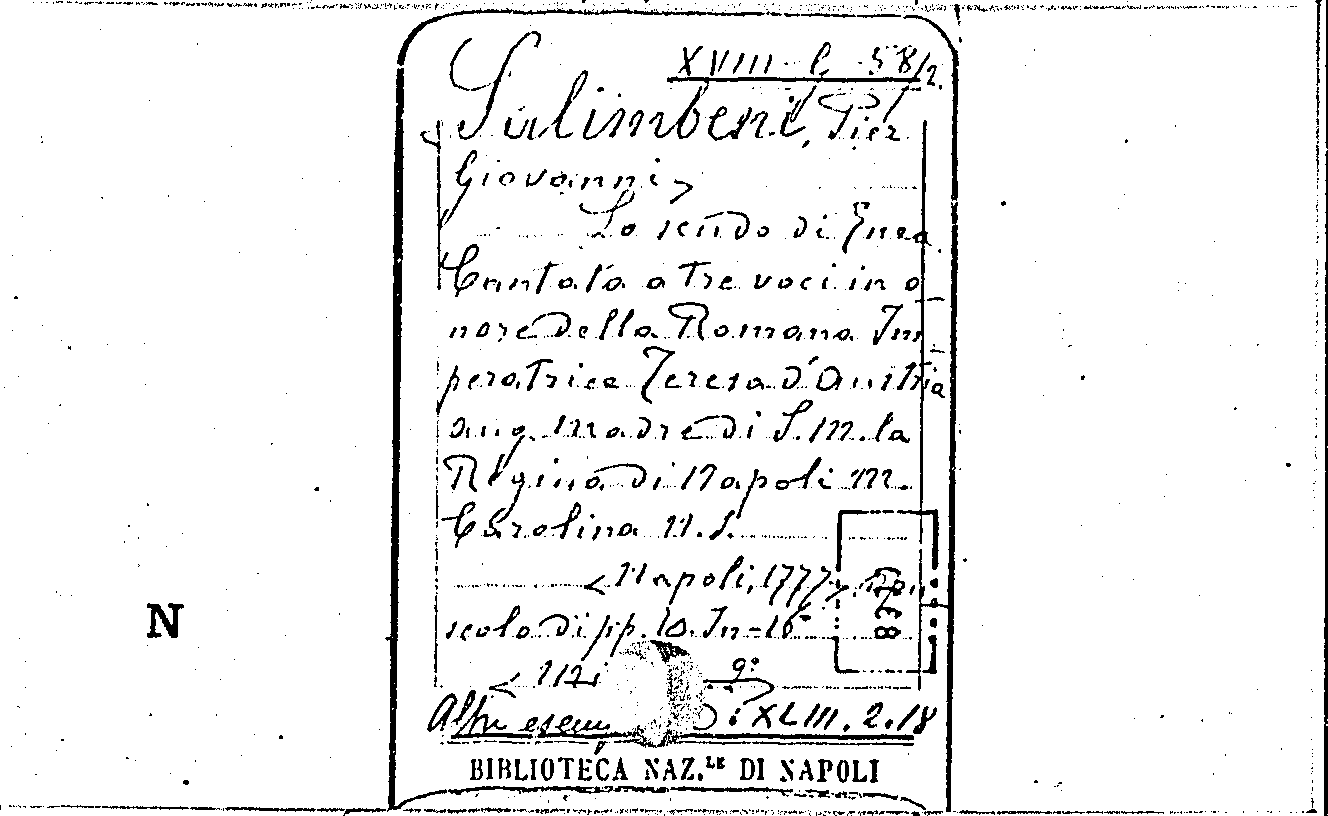 XVIII-b-58/2.
Salimbeni, Pier
Giovanni,
Lo scudo di Enea
Cantata a tre voci in o
nore della Romana Im
peratrice Teresa d'Austria
aug. madre di S.M. la
Regina di Napoli M.
Carolina N.S.
<Napoli, 1777>. Opu
scolo di pp. 10. In-16°
8378
Altri esem XLIII.2.18
BIBLIOTECA NAZ.LE DI NAPOLI
N